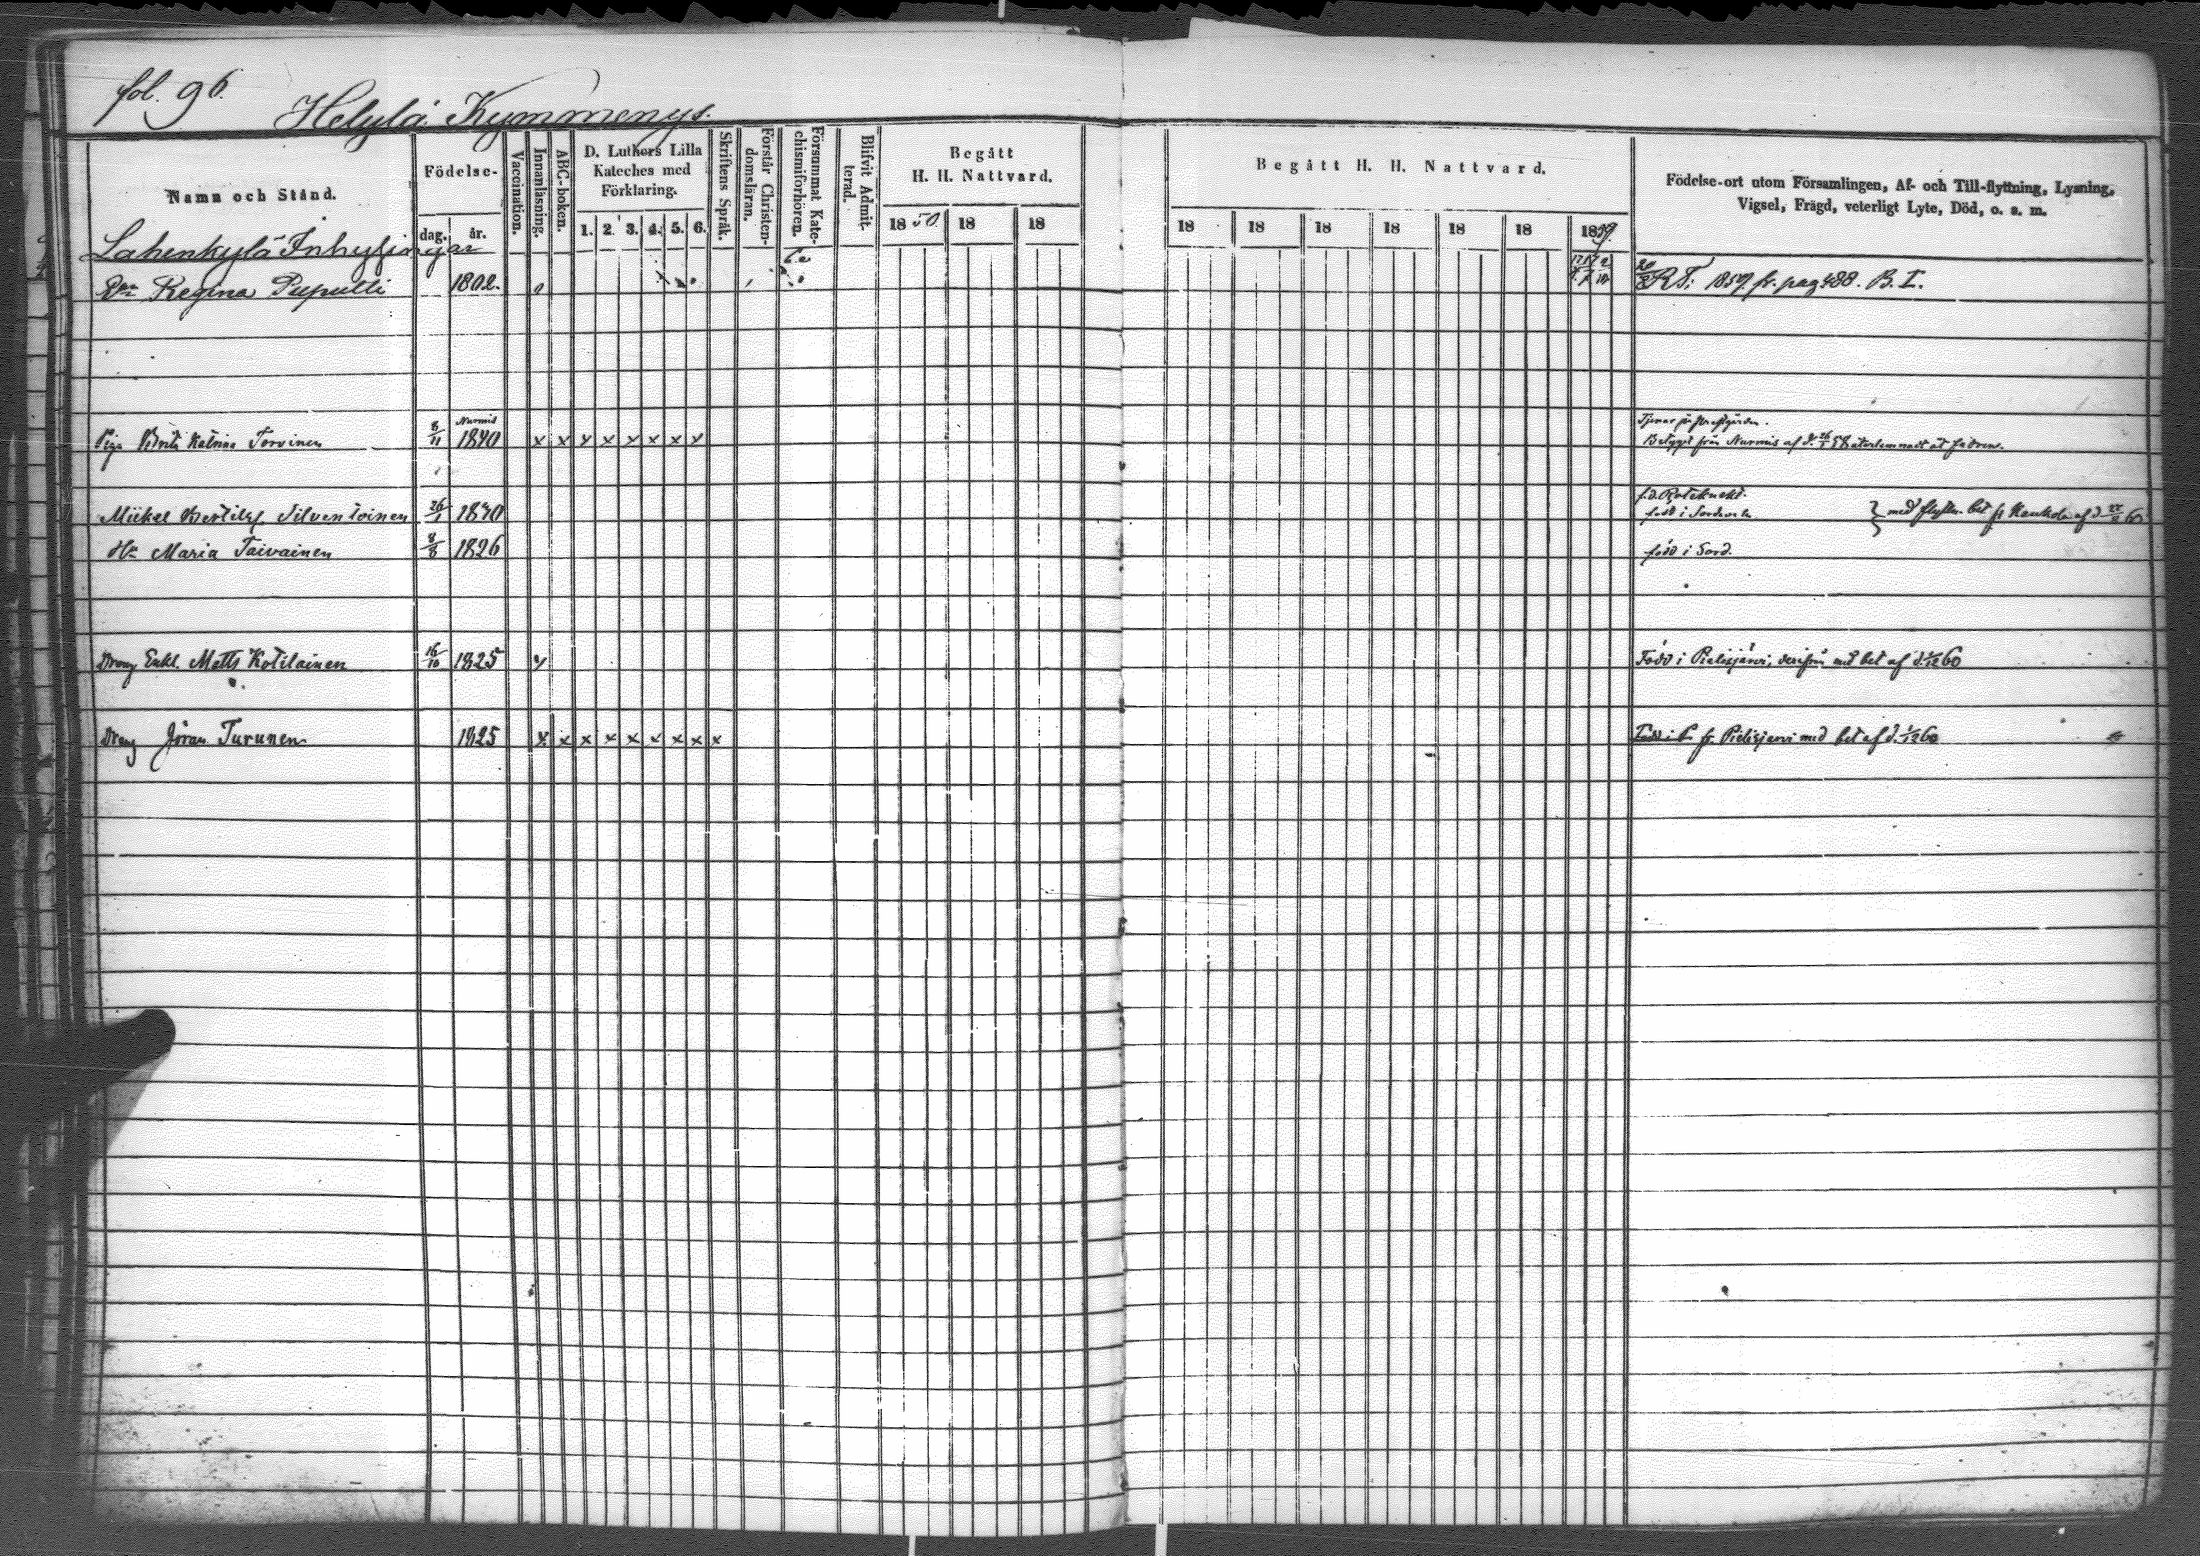 fol. 96.
Helylä Kymmenys.
Namn och Stånd.
Födelse-
dag. år.
Vaccination.
Innanläsning.
ABC-boken.
D. Luthers Lilla
Kateches med
Förklaring.
1. 2 3. 4. 5. 6.
Skriftens Språk.
Förstår Christen-
domsläran.
Försummat Kate-
chismiförhören.
Blifvit Admit-
terad.
Begått
H. H. Nattvard.
1850. 18 18
Begått H. H. Nattvard.
18 18 18 18 18 18 1859.
Födelse-ort utom Församlingen, Af- och Till-flyttning, Lysning,
Vigsel, Frägd, veterligt Lyte, Död, o. s. m.
Lahenkylä Inhysingar
Regina Puputti 1802. 1859 fr. pag 488. B. I.
Nurmis
Piga Katrina Torvinen 8/11 1840 x x x x x x x x
från Nurmis af d. 58
Mikel Silventoinen 26/1 1840 född i
Maria Taivainen 8/8 1826 född i Sord.
Dreng Enkl. Matts Kotilainen 16/10 1825 Född i Pielisjärvi, med bet af d. 60
Dreng Jöran Turunen 1825 x x x x x x x x x fr. Pielisjärvi med bet af d. 60